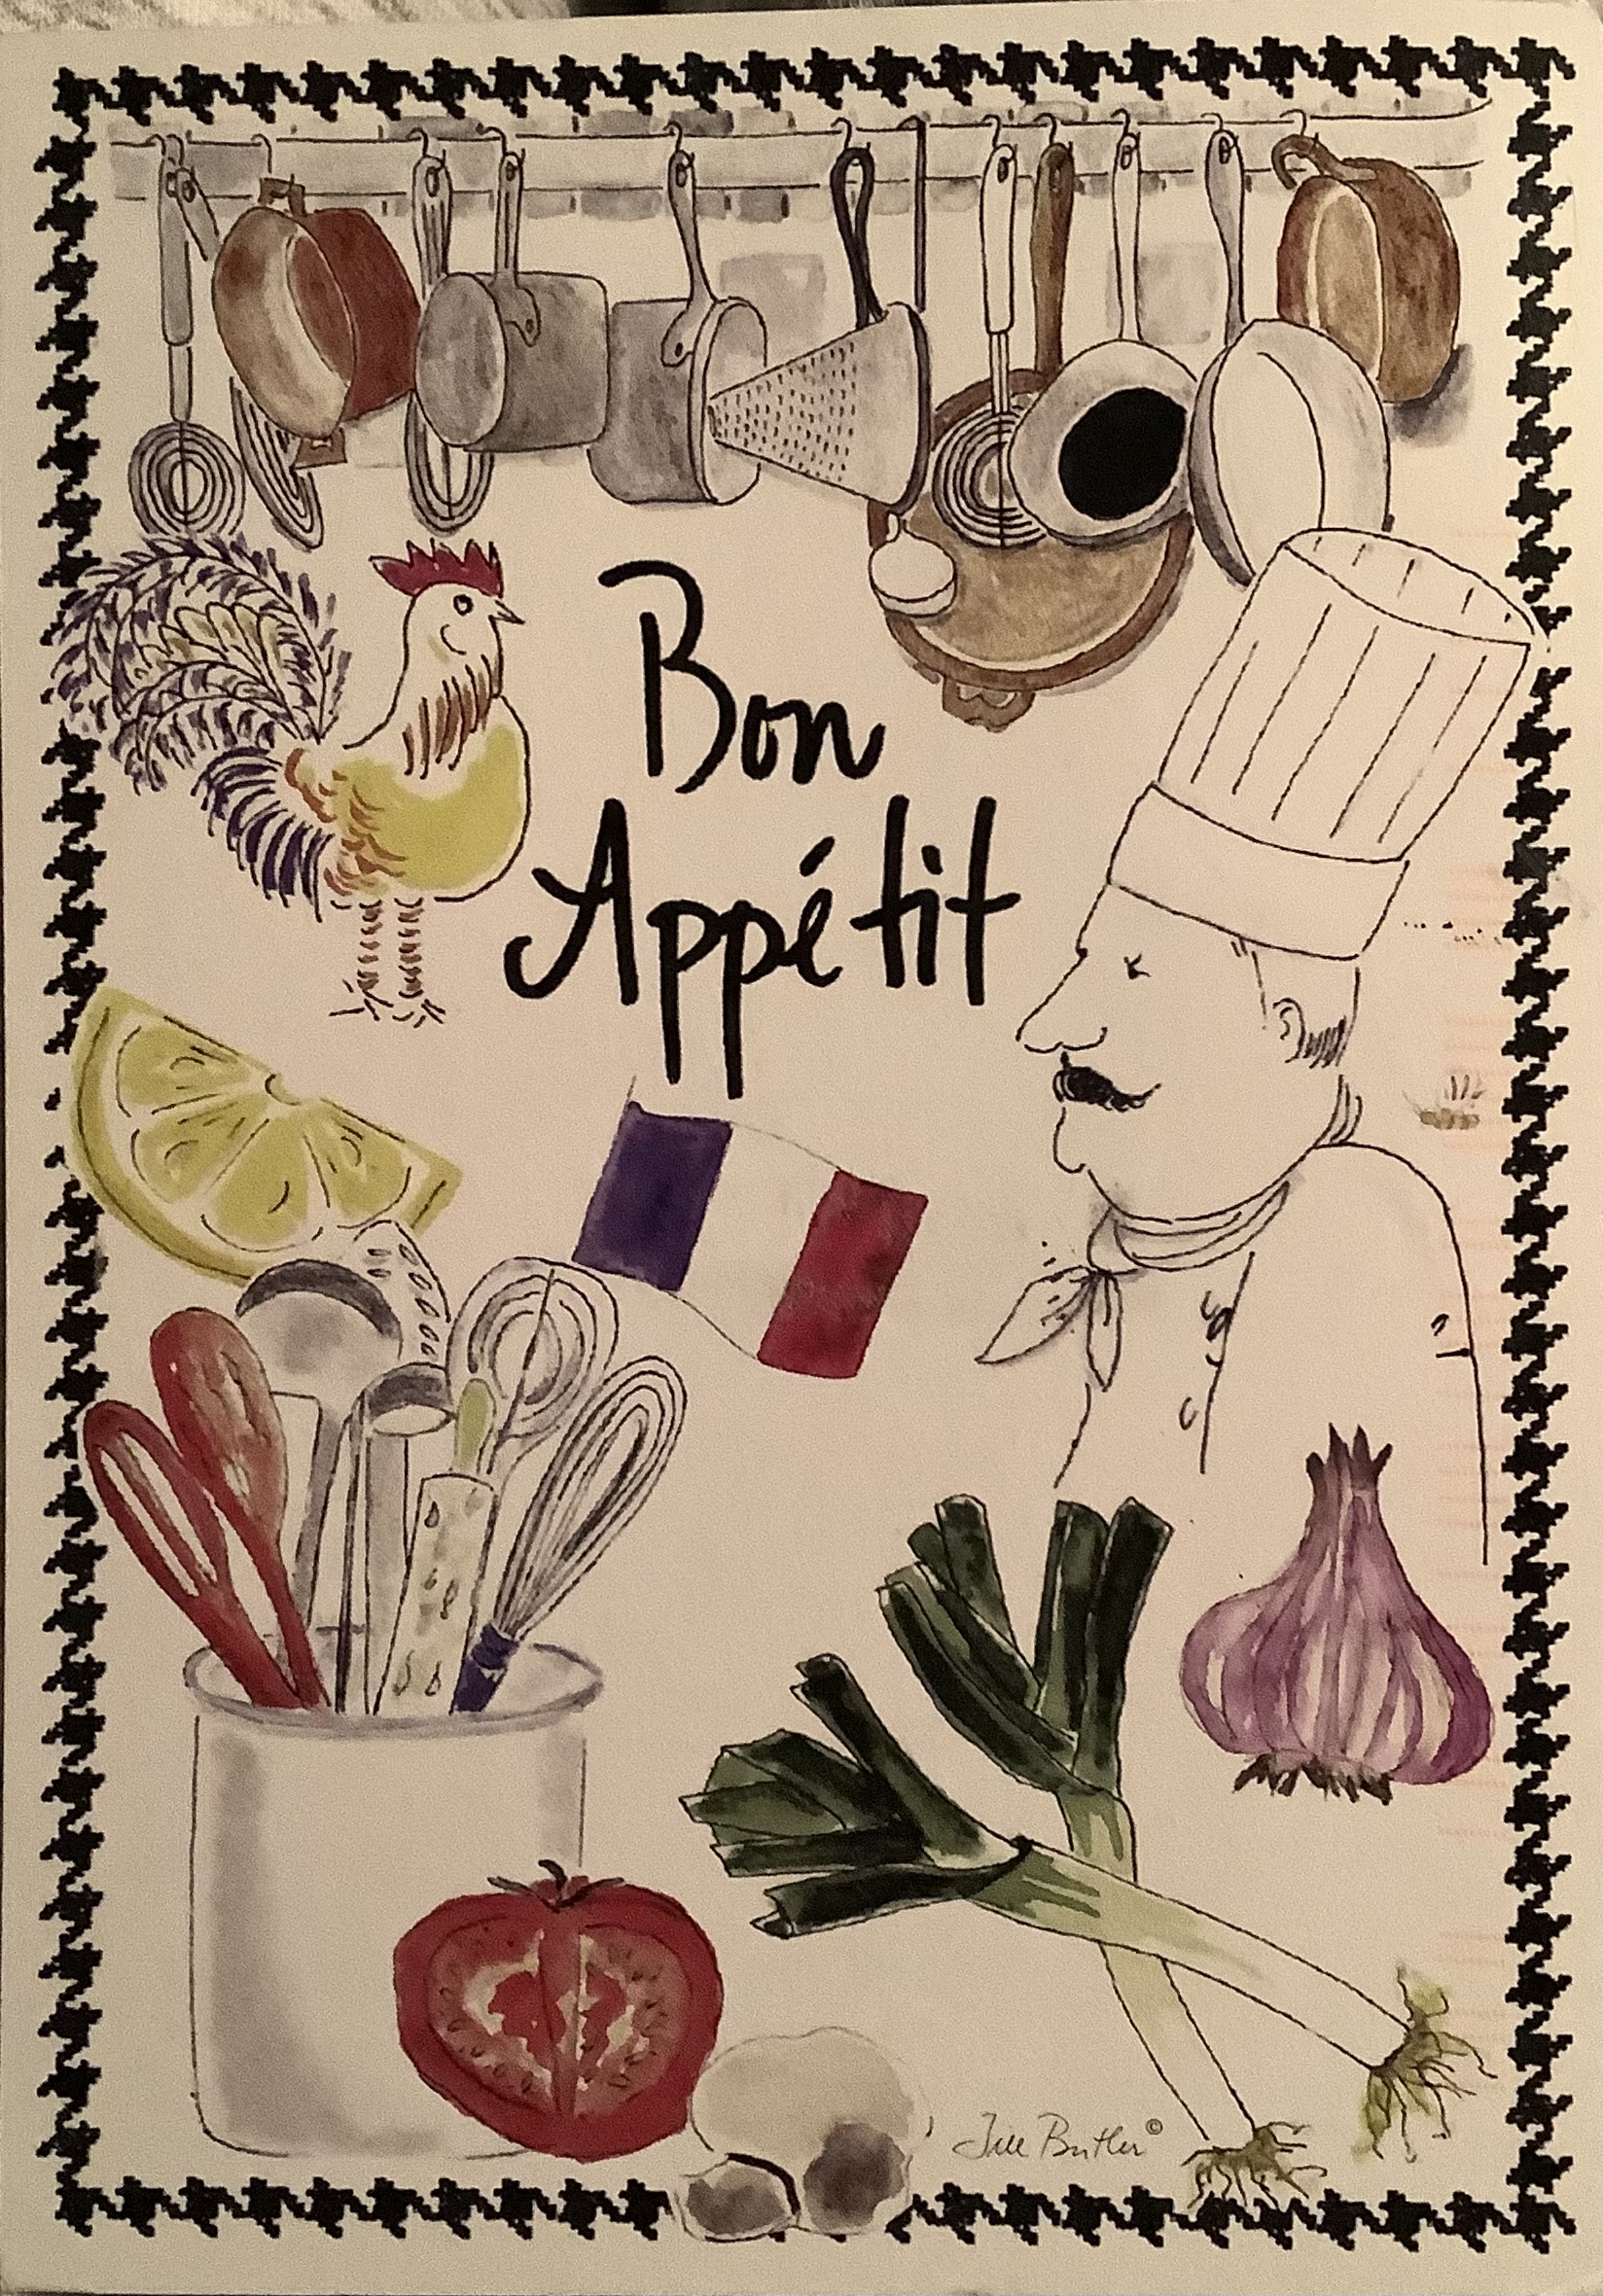 Bon
Appétit
Jill Butler ©